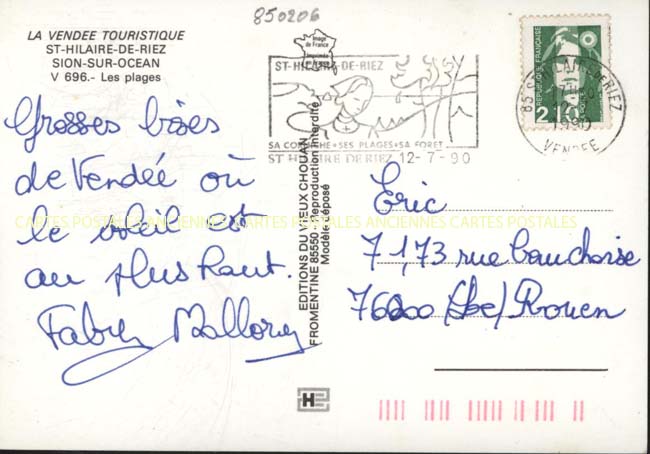 850206
LA VENDEE TOURISTIQUE
ST-HILAIRE-DE-RIEZ
SION-SUR-OCEAN
V 696.- Les plages
Image
de France
Imprimée
ST-HILAIRE-DE-RIEZ
SA CORNICHE•SES PLAGES•SA FORET
ST HILAIRE DE RIEZ 12-7-90
REPUBLIQUE FRANÇAISE
2,10
VENDEE
Grosses bises
de Vendée où
le soleil est
au plus haut.
EDITIONS DU VIEUX CHOUAN
FROMENTINE 85550 - Reproduction interdite
Modèle déposé
Eric
71,73 rue Cauchoise
76000 Rouen
CARTES POSTALES ANCIENNES CARTES POSTALES ANCIENNES CARTES POSTALES